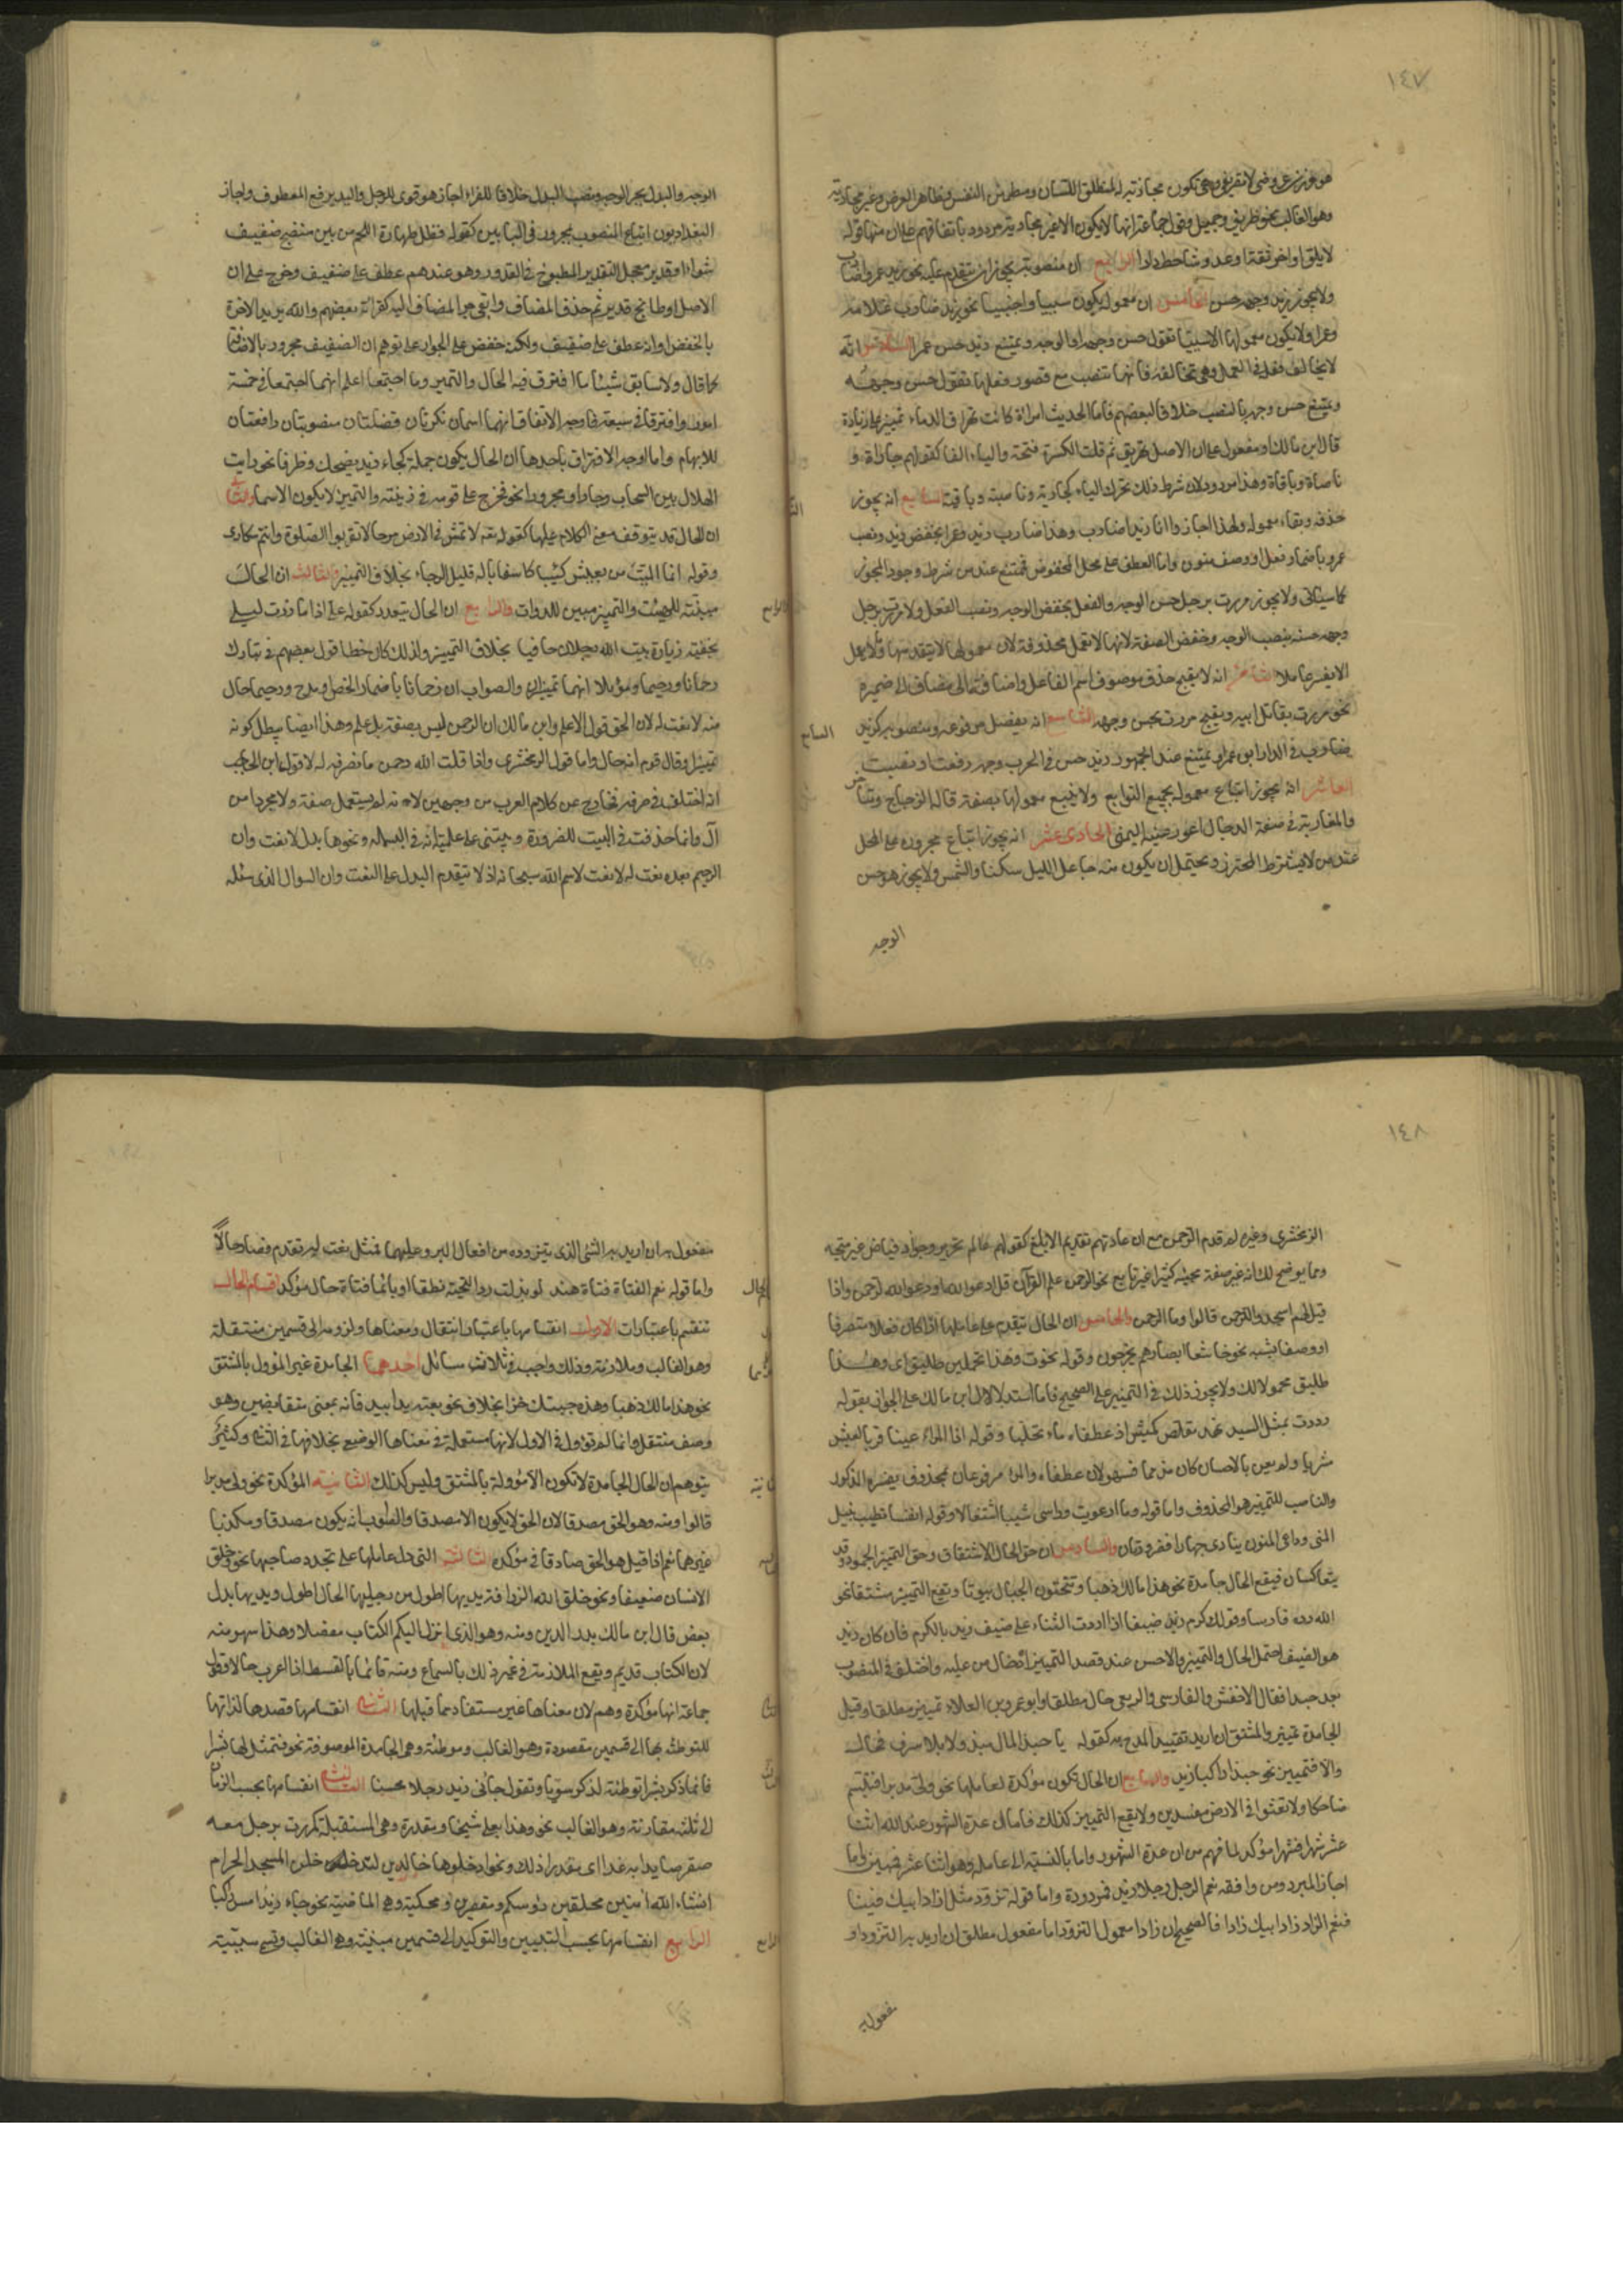 ١٤٧
وهو الغالب نحو ظريف وجميل وقول جماعة انها لا تكون الا غير مجارية مردود باتفاقهم على ان منها قوله
لا يلق او اخو ثقة او عدو شاحط دارا الرابع ان منصوبه يجوز ان يتقدم عليه نحو زيد عمرا ضارب
ولا يجوز زيد وجهه حسن الخامس ان معموله يكون سببيا واجنبيا نحو زيد ضارب غلامه
وعمرا ولا يكون معمولها الا سببيا تقول حسن وجهه او الوجه ويمتنع زيد حسن عمرا السادس انه
لا يخالف فعله في العمل وهي تخالفه فانها تنصب مع قصور فعلها تقول حسن وجهه
ويمتنع حسن وجهه بالنصب خلافا لبعضهم فاما الحديث امراة كانت تهراق الدماء تمييز على زيادة
قال ابن مالك او مفعول على ان الاصل تهريق ثم قلبت الكسرة فتحة والياء الفا كقولهم جاراة و
ناصاة وباقاة وهذا مردود لان شرط ذلك تحرك الياء كجارية وناصية وباقية السابع انه يجوز
حذفه وبقاء معموله ولهذا اجازوا انا زيدا ضاربه وهذا ضارب زيد وعمرا بخفض زيد ونصب
عمرو باضمار فعل او وصف منون واما العطف على محل المخفوض فممتنع عند من شرط وجود المحرز
كما سياتي ولا يجوز مررت برجل حسن الوجه والفعل بخفض الوجه ونصب الفعل ولا مررت برجل
وجهه حسنه بنصب الوجه وخفض الصفة لانها لا تعمل محذوفة لان معمولها لا يتقدمها وما لا يعمل
لا يفسر عاملا الثامن انه لا يقبح حذف موصوف اسم الفاعل واضافته الى مضاف الى ضميره
نحو مررت بقاتل ابيه ويقبح مررت بحسن وجهه التاسع انه يفصل مرفوعه ومنصوبه كزيد
ضارب في الدار ابوه عمرا ويمتنع عند الجمهور زيد حسن في الحرب وجهه رفعت او نصبت
العاشر انه يجوز اتباع معموله بجميع التوابع ولا يتبع معمولها بصفة قاله الزجاج ومتاخر
والمغاربة في صفة الدجال اعور عينه اليمنى الحادي عشر انه يجوز اتباع مجروره على المحل
عند من لا يشترط المحرز ويحتمل ان يكون منه جاعل الليل سكنا والشمس ولا يجوز هو حسن
الوجه
الوجه والبدن بجر الوجه ونصب البدن خلافا للفراء اجاز هو قوى الرجل واليد برفع المعطوف واجاز
البغداديون اتباع المنصوب بمجرور في البابين كقوله فظل طهاة اللحم من بين منضج صفيف
شواء او قدير معجل القدير المطبوخ في القدر وهو عندهم عطف على صفيف وخرج على ان
الاصل او طابخ قدير ثم حذف المضاف وابقي جر المضاف اليه كقرائة بعضهم والله يريد الاخرة
بالخفض او انه عطف على صفيف ولكن خفض على الجوار على توهم ان الصفيف مجرور بالاضافة
كما قال ولا سابق شيئا ما افترق فيه الحال والتمييز وما اجتمعا اعلم انهما اجتمعا في خمسة
امور وافترقا في سبعة فاوجه الاتفاق انهما اسمان نكرتان فضلتان منصوبتان رافعتان
للابهام واما اوجه الافتراق فاحدها ان الحال يكون جملة كجاء زيد يضحك وظرفا نحو رايت
الهلال بين السحاب وجارا ومجرورا نحو فخرج على قومه في زينته والتمييز لا يكون الا اسما والثاني
ان الحال قد يتوقف معنى الكلام عليها كقوله تعه لا تمش في الارض مرحا لا تقربوا الصلوة وانتم سكارى
وقوله انما الميت من يعيش كئيبا كاسفا باله قليل الرجاء بخلاف التمييز والثالث ان الحال
مبينة للهيئات والتمييز مبين للذوات والرابع ان الحال يتعدد كقوله على اذا ما زرت ليلى
بخفية زيارة بيت الله رجلان حافيا بخلاف التمييز ولذلك كان خطا قول بعضهم في تبارك
رحمانا ورحيما وموئلا انهما تمييزان والصواب ان رحمانا باضمار اخص او امدح ورحيما حال
منه لا نعت له لان الحق قول الاعلم وابن مالك ان الرحمن ليس بصفة بل علم وهذا ايضا يبطل كونه
تمييزا وقال قوم انه حال واما قول الزمخشري واذا قلت الله رحمن ما تصرفه له لا وقول ابن الحاجب
انه اختلف في صرفه فخارج عن كلام العرب من وجهين لانه لم يستعمل صفة ولا مجردا من
ال وانما حذفت في البيت للضرورة وينبني على علميته انه في البسملة ونحوها بدل لا نعت وان
الرحيم بعده نعت له لا نعت لاسم الله سبحانه اذ لا يتقدم البدل على النعت وان السوال الذي سئله
١٤٨
الزمخشري وغيره لم قدم الرحمن مع ان عادتهم تقديم الابلغ كقولهم عالم نحرير وجواد فياض غير متجه
ومما يوضح لك انه غير صفة مجيئه كثيرا غير تابع نحو الرحمن علم القرآن قل ادعوا الله او ادعوا الرحمن واذا
قيل لهم اسجدوا للرحمن قالوا وما الرحمن والخامس ان الحال يتقدم على عاملها اذا كان فعلا متصرفا
او وصفا يشبهه نحو خاشعا ابصارهم يخرجون وقوله نجوت وهذا تحملين طليق اي وهذا
طليق محمولا لك ولا يجوز ذلك في التمييز على الصحيح فاما استدلال ابن مالك على الجواز بقوله
رددت بمثل السيد نهد مقلص كميش اذ عطفاه ماء تحلبا وقوله اذا المرء عينا قر بالعيش
مثريا ولم يعن بالاحسان كان مذمما فسهو لان عطفاه والمرء مرفوعان بمحذوف يفسره المذكور
والناصب للتمييز هو المحذوف واما قوله وما ارعويت وراسي شيبا اشتعلا وقوله انفسا تطيب بنيل
المنى وداعي المنون ينادي جهارا فضرورتان والسادس ان حق الحال الاشتقاق وحق التمييز الجمود وقد
يتعاكسان فيقع الحال جامدة نحو هذا مالك ذهبا وتنحتون الجبال بيوتا ويقع التمييز مشتقا نحو
لله دره فارسا وقولك كرم زيد ضيفا اذا اردت الثناء على ضيف زيد بالكرم فان كان زيد
هو الضيف احتمل الحال والتمييز والاحسن عند قصد التمييز ادخال من عليه واختلف في المنصوب
بعد حبذا فقال الاخفش والفارسي والربعي حال مطلقا وابو عمرو بن العلاء تمييز مطلقا وقيل
الجامدة تمييز والمشتق ان اريد تقييد المدح به كقوله يا حبذا المال مبذولا بلا سرف فحال
والا فتمييز نحو حبذا راكبا زيد والسابع ان الحال تكون مؤكدة لعاملها نحو ولى مدبرا فتبسم
ضاحكا ولا تعثوا في الارض مفسدين ولا يقع التمييز كذلك فاما ان عدة الشهور عند الله اثنا
عشر شهرا فشهرا مؤكد لما فهم من ان عدة الشهور واما بالنسبة الى عامله وهو اثنا عشر فمبين واما
اجازة المبرد ومن وافقه نعم الرجل رجلا زيد فمردودة واما قوله تزود مثل زاد ابيك فينا
فنعم الزاد زاد ابيك زادا فالصحيح ان زادا معمول لتزود اما مفعول مطلق ان اريد به التزود او
مفعول به
مفعول به ان اريد به الشئ الذي يتزوده من افعال البر وعليهما فمثل نعت له تقدم فصار حالا
واما قوله نعم الفتاة فتاة هند لو بذلت رد التحية نطقا او بايماء ففتاة حال مؤكدة اقسام الحال
تنقسم باعتبارات الاول انقسامها باعتبار انتقال معناها ولزومه الى قسمين منتقلة
وهو الغالب وملازمة وذلك واجب في ثلاث مسائل احدهما الجامدة غير المؤول بالمشتق
نحو هذا مالك ذهبا وهذه جبتك خزا بخلاف نحو بعته يدا بيد فانه بمعنى متقابضين وهو
وصف منتقل وانما لم تؤول في الاول لانها مستعملة في معناها الوضعي بخلافها في الثاني وكثير
يتوهم ان الحال الجامدة لا تكون الا مؤولة بالمشتق وليس كذلك الثانية المؤكدة نحو ولى مدبرا
قالوا ومنه وهو الحق مصدقا لان الحق لا يكون الا مصدقا والصواب انه يكون مصدقا ومكذبا
وغيرهما نعم اذا قيل هو الحق صادقا فهي مؤكدة الثالثة التي دل عاملها على تجدد صاحبها نحو وخلق
الانسان ضعيفا ونحو خلق الله الزرافة يديها اطول من رجليها الحال اطول ويديها بدل
بعض قال ابن مالك بدر الدين ومنه وهو الذي انزل اليكم الكتاب مفصلا وهذا سهو منه
لان الكتاب قديم ويقع الملازمة في غير ذلك بالسماع ومنه قائما بالقسط اذا اعرب حالا وقول
جماعة انها مؤكدة وهم لان معناها غير مستفاد مما قبلها الثاني انقسامها قصدها لذاتها
للتوطئة بها الى قسمين مقصودة وهو الغالب وموطئة وهي الجامدة الموصوفة نحو فتمثل لها بشرا
فانما ذكر بشرا توطئة لذكر سويا وتقول جائني زيد رجلا محسنا الثالث انقسامها بحسب الزمان
الى ثلثة مقارنة وهو الغالب نحو وهذا بعلي شيخا ومقدرة وهي المستقبلة كمررت برجل معه
صقر صايدا به غدا اي مقدرا ذلك ونحو ادخلوها خالدين لتدخلن المسجد الحرام
انشاء الله آمنين محلقين رؤسكم ومقصرين ومحكية وهي الماضية نحو جاء زيد امس راكبا
الرابع انقسامها بحسب التبيين والتوكيد الى قسمين مبينة وهو الغالب وتسمى